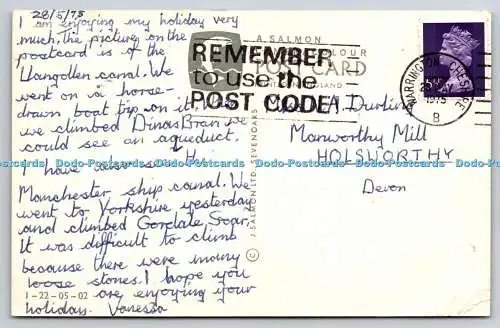 28/5/75
I am enjoying my holiday very
much. The picture on the
postcard is of the
Llangollen canal. We
went on a horse-
drawn boat trip on it
we climbed Dinas Bran we
could see an aqueduct.
I have also seen the
Manchester ship canal. We
went to Yorkshire yesterday
and climbed Gordale Scar.
It was difficult to climb
because there were many
loose stones. I hope you
are enjoying your
holiday. Vanessa
1-22-05-02
A. SALMON
COLOUR
POSTCARD
REMEMBER
to use the
POST CODE
WARRINGTON CHESHIRE
1975
B
A. Durling
Manworthy Mill
HOLSWORTHY
Devon
© J. SALMON LTD. SEVENOAKS
Dodo-Postcards Dodo-Postcards Dodo-Postcards Dodo-Postcards Dodo-Postcards Dodo-Postcards